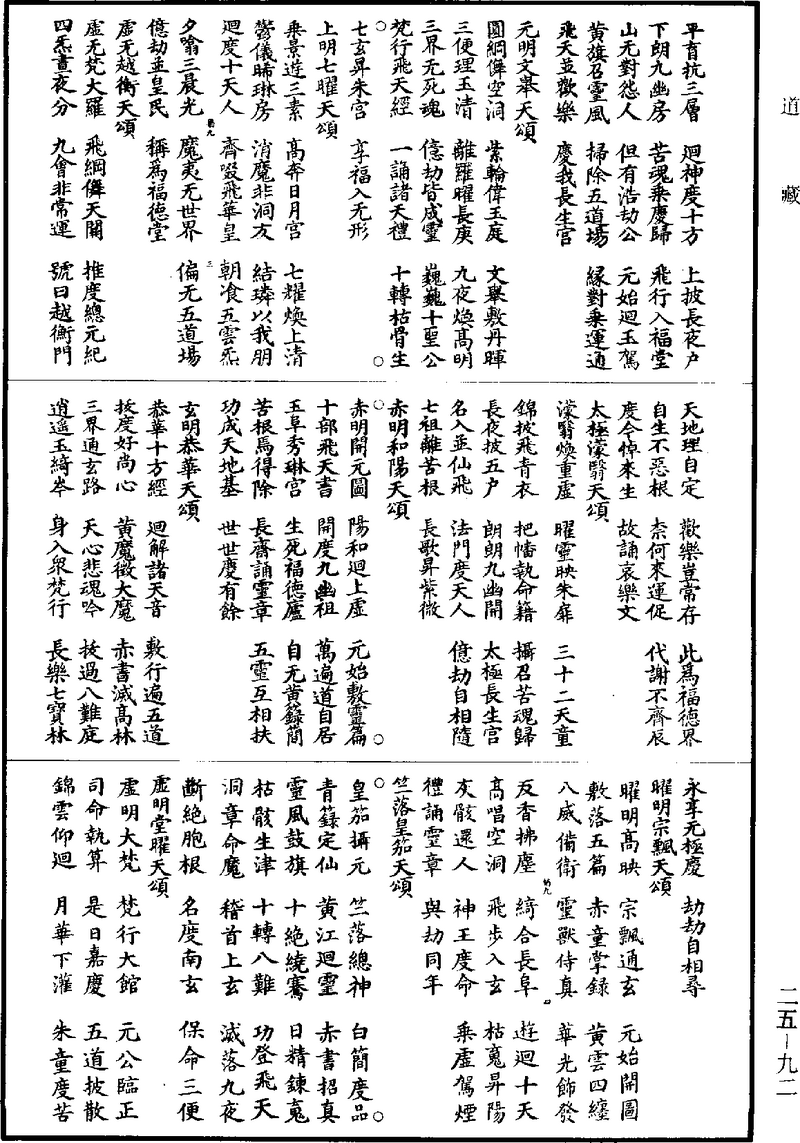 道藏
平育抗三層　迴神度十方　上披長夜户
下朗九幽房　苦魂乘慶歸　飛行入福堂
山无對怨人　但有浩劫公　元始迴玉駕
黄旗召靈風　掃除五道場　緣對乘運通
飛天並歡樂　慶我長生宫
元明文舉天頌
圓綱僢空洞　紫輪偉玉庭　文舉敷丹暉
三便理玉清　離羅曜長庚　九夜煥髙明
三界无死魂　億劫皆成靈　巍巍十聖公
梵行飛天經　一誦諸天禮　十轉枯骨生
七玄昇朱宫　享福入无形
上明七曜天頌
乘景遊三素　髙奔日月宫　七耀煥上清
鬱儀晞琳房　消魔非洞友　結璘以我朋
迴度十天人　齊啜飛華皇　朝飡五雲炁
夕噏三晨光　魔夷无世界　偏无五道場
億劫並皇民　稱為福德堂
虛无越衡天頌
虛无梵大羅　飛綱僢天關　推度總元紀
四炁晝夜分　九會非常運　號曰越衡門
天地理自定　歡樂豈常存　此為福德界
自生不惡根　柰何來運促　代謝不齊辰
度令悼來生　故誦哀樂文
太極濛翳天頌
濛翳煥重虛　曜靈映朱扉　三十二天童
錦披飛青衣　把幡執命籍　攝召苦魂歸
長夜披五户　朗朗九幽開　太極長生宫
名入並仙飛　法門度天人　億劫自相隨
七祖離苦根　長歌昇紫微
赤明和陽天頌
赤明開元圖　陽和迴上虛　元始敷靈篇
十部飛天書　開度九幽祖　萬遍道自居
玉阜秀琳宫　生死福德廬　自无黄籙簡
苦根焉得除　長齋誦靈章　五靈互相扶
功成天地基　世世慶有餘
玄明恭華天頌
恭華十方經　迴解諸天音　敷行遍五道
拔度好尚心　黄魔徵大魔　赤書滅髙林
三界通玄路　天心悲魂吟　拔過八難庭
逍遥玉綺岑　身入衆梵行　長樂七寶林
永享无極慶　劫劫自相尋
曜明宗飄天頌
曜明髙映　宗飄通玄　元始開圖
敷落五篇　赤童掌録　黄雲四纏
八威備衛　靈獸侍真　華光飾發
反香拂塵　綺合長阜　遊迴十天
髙唱空洞　飛步入玄　枯魂昇陽
灰骸還人　神王度命　乘虛駕煙
禮誦靈章　與劫同年
竺落皇笳天頌
皇笳攝元　竺落總神　白簡度品
青籙定仙　黄江迴靈　赤書招真
靈風鼓旗　十絶繞騫　日精鍊魂
枯骸生津　十轉八難　功登飛天
洞章命魔　稽首上玄　滅落九夜
斷絶胞根　名度南玄　保命三便
虛明堂曜天頌
虛明大梵　梵行大館　元公臨正
司命執算　是日嘉慶　五道披散
錦雲仰迴　月華下灌　朱童度苦
二五－九二